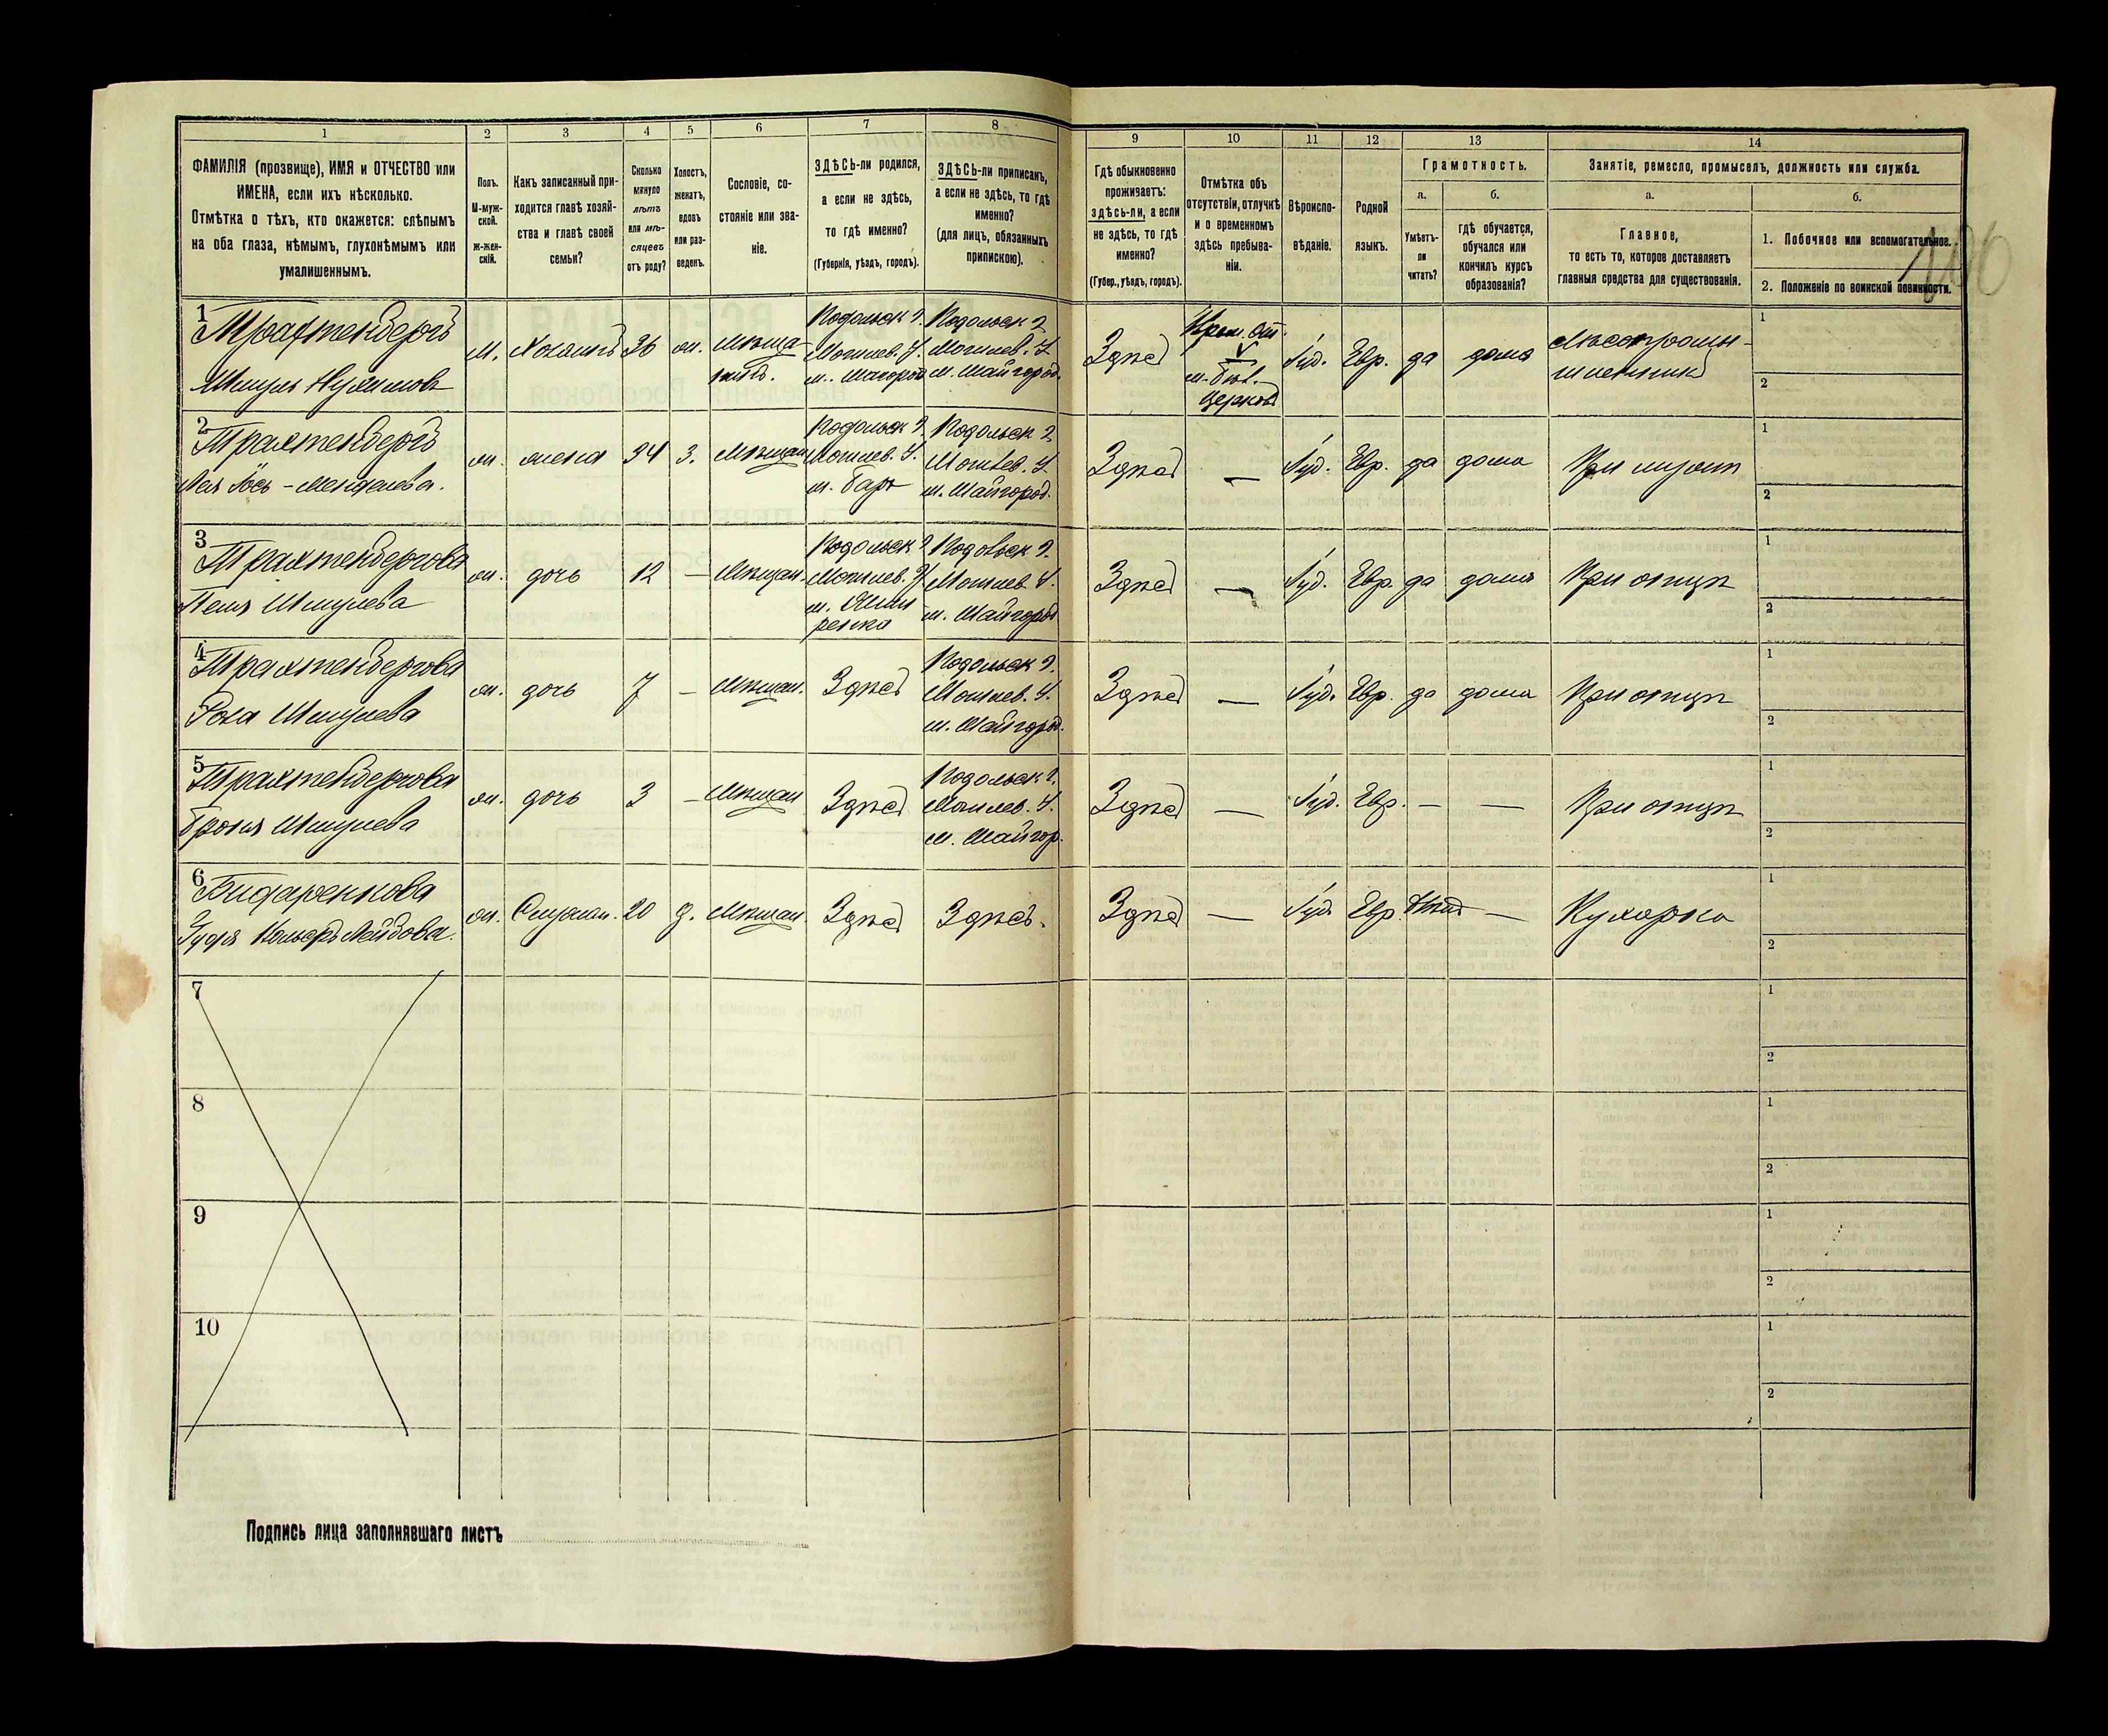 1 2 3 4 5 6 7 8 9 10 11 12 13 14
ФАМИЛІЯ (прозвище), ИМЯ и ОТЧЕСТВО или
ИМЕНА, если ихъ нѣсколько.
Отмѣтка о тѣхъ, кто окажется: слѣпымъ
на оба глаза, нѣмымъ, глухонѣмымъ или
умалишеннымъ.
Полъ.
М-муж-
ской.
ж-жен-
скій.
Какъ записанный при-
ходится главѣ хозяй-
ства и главѣ своей
семьи?
Сколько
минуло
лѣтъ
или мѣ-
сяцевъ
отъ роду?
Холостъ,
женатъ,
вдовъ
или раз-
веденъ.
Сословіе, со-
стояніе или зва-
ніе.
ЗДѢСЬ-ли родился,
а если не здѣсь,
то гдѣ именно?
(Губернія, уѣздъ, городъ).
ЗДѢСЬ-ли приписанъ,
а если не здѣсь, то гдѣ
именно?
(для лицъ, обязанныхъ
припискою).
Гдѣ обыкновенно
проживаетъ:
здѣсь-ли, а если
не здѣсь, то гдѣ
именно?
(Губер., уѣздъ, городъ).
Отмѣтка объ
отсутствіи, отлучкѣ
и о временномъ
здѣсь пребыва-
ніи.
Вѣроиспо-
вѣданіе.
Родной
языкъ.
Грамотность.
а.
Умѣетъ-
ли
читать?
б.
гдѣ обучается,
обучался или
кончилъ курсъ
образованія?
Занятіе, ремесло, промыселъ, должность или служба.
а.
Главное,
то есть то, которое доставляетъ
главныя средства для существованія.
б.
1. Побочное или вспомогательное.
2. Положеніе по воинской повинности.
1
Трахтенбергъ
Шмуль Нухимовъ
м. Хозяинъ 36 ж. Мѣща-
нинъ.
Подольск г.
Могилев. у.
Подольск г.
Могилев. у.
м. Шайгород.
Здѣсь
Врем. от.
м. Бѣл.
Церковь
Іуд. Евр. да дома
Лѣсопромы-
шленникъ
1
2
2
Трахтенбергъ
ж. жена 34 З. Мѣщан
Подольск г.
Могилев. у.
м. Бар
Подольск г.
Могилев. у.
м. Шайгород.
Здѣсь — Іуд. Евр. да дома При мужѣ
1
2
3
Трахтенбергова
Шмулева
ж. дочь 12 — Мѣщан.
Подольск г.
Могилев. у.
Подольск г.
Могилев. у.
м. Шайгород
Здѣсь — Іуд. Евр. да дома При отцѣ
1
2
4
Трахтенбергова
Шмулева
ж. дочь 7 — Мѣщан. Здѣсь
Подольск г.
Могилев. у.
м. Шайгород.
Здѣсь — Іуд. Евр. да дома При отцѣ
1
2
5
Трахтенбергова
Броня Шмулева
ж. дочь 3 — Мѣщан Здѣсь
Подольск г.
Могилев. у.
м. Шайгор.
Здѣсь — Іуд. Евр. — — При отцѣ
1
2
6
ж. 20 д. Мѣщан Здѣсь Здѣсь. Здѣсь — Іуд. Евр. — Кухарка
1
2
7
1
2
8
1
2
9
1
2
10
1
2
Подпись лица заполнявшаго листъ